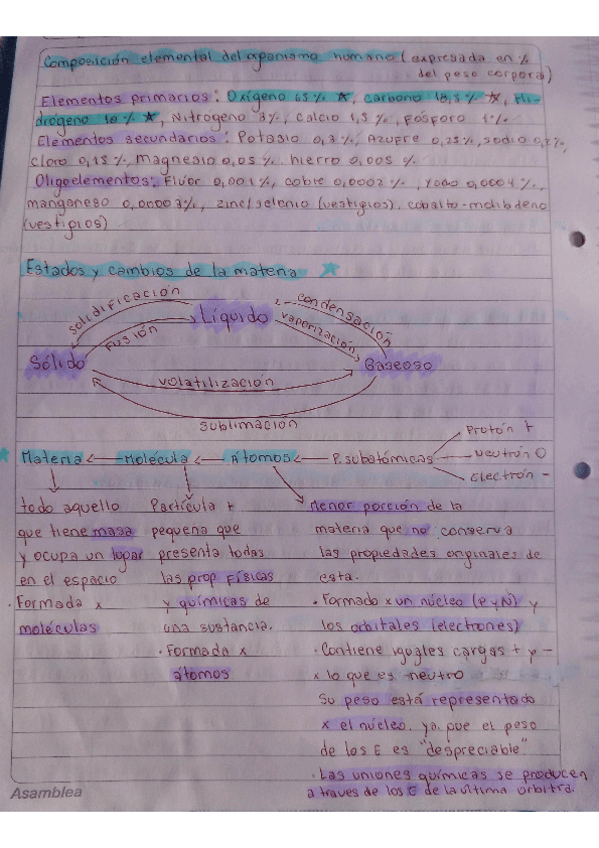 Composición elemental del organismo humano (expresada en %
del peso corporal)
Elementos primarios: Oxígeno 65% ★, carbono 18,5% ★, Hi-
drógeno 10% ★, Nitrógeno 3%, calcio 1,5%, Fósforo 1%.
Elementos secundarios: Potasio 0,3%, Azufre 0,25%, sodio 0,2%,
cloro 0,15%, magnesio 0,05%, hierro 0,005%
Oligoelementos: Flúor 0,001%, cobre 0,0002%, yodo 0,0004%,
manganeso 0,00003%, zinc/selenio (vestigios), cobalto-molibdeno
(vestigios)
Estados y cambios de la materia ★
solidificación
Líquido
condensación
fusión
vaporización
Sólido
Gaseoso
volatilización
sublimación
Protón +
★ Materia ← Molécula ← Átomos ← P. subatómicas
Neutrón 0
Electrón -
todo aquello Partícula + Menor porción de la
que tiene masa pequeña que materia que no conserva
y ocupa un lugar presenta todas las propiedades originales de
en el espacio las prop físicas esta.
· Formada x y químicas de · Formado x un núcleo (P y N) y
moléculas una sustancia. los orbitales (electrones)
· Formada x · Contiene iguales cargas + y -
átomos x lo que es neutro
Su peso está representado
x el núcleo, ya que el peso
de los E es "despreciable"
· Las uniones químicas se producen
a traves de los E de la última orbitra.
Asamblea